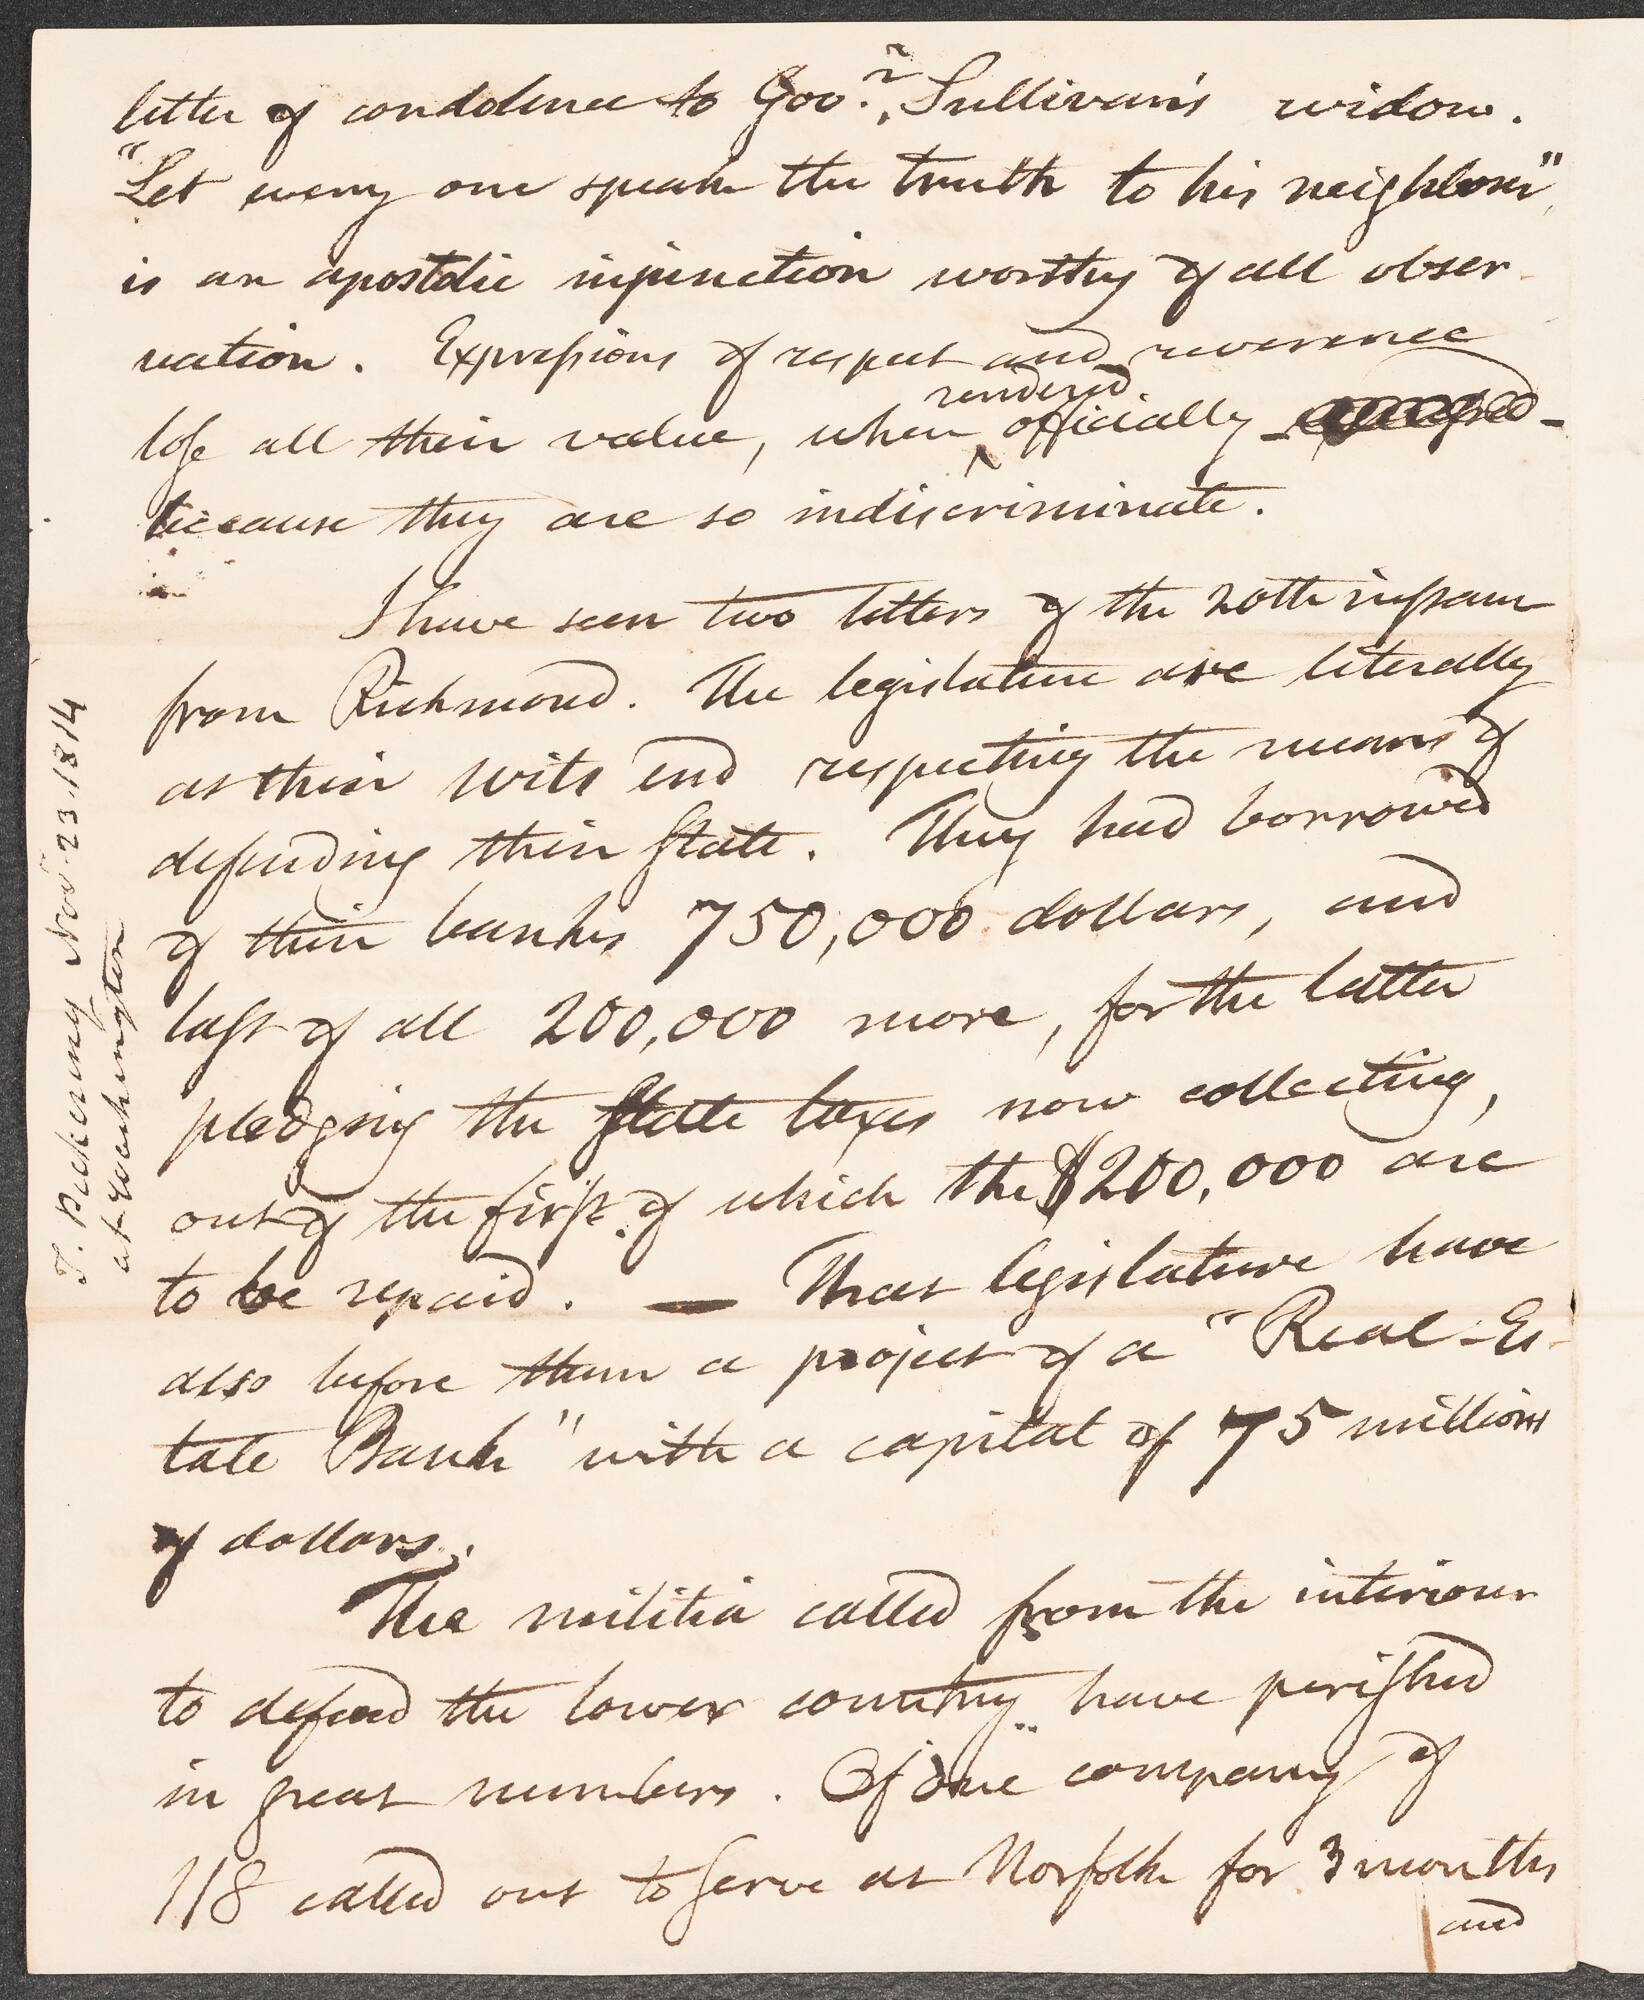 letter of condolence to Gov.r Sullivan's widow.
"Let every one speak the truth to his neighbour",
is an apostolic injunction worthy of all obser-
vation. Expressions of respect and reverence
lose all their value, when rendered officially
because they are so indiscriminate.
I have seen two letters of the 20th
from Richmond. The legislature are literally
at their wits end respecting the means of
defending their State. They had borrowed
of their banks 750,000 dollars, and
last of all 200,000 more, for the latter
pledging the State taxes now collecting,
out of the first of which the $200,000 are
to be repaid. — That legislature have
also before them a project of a "Real-Es-
tate Bank" with a capital of 75 millions
of dollars.
The militia called from the interiour
to defend the lower country have perished
in great numbers. Of one company of
118 called out to serve at Norfolk for 3 months
and
T. Pickering Nov 23. 1814
at Washington